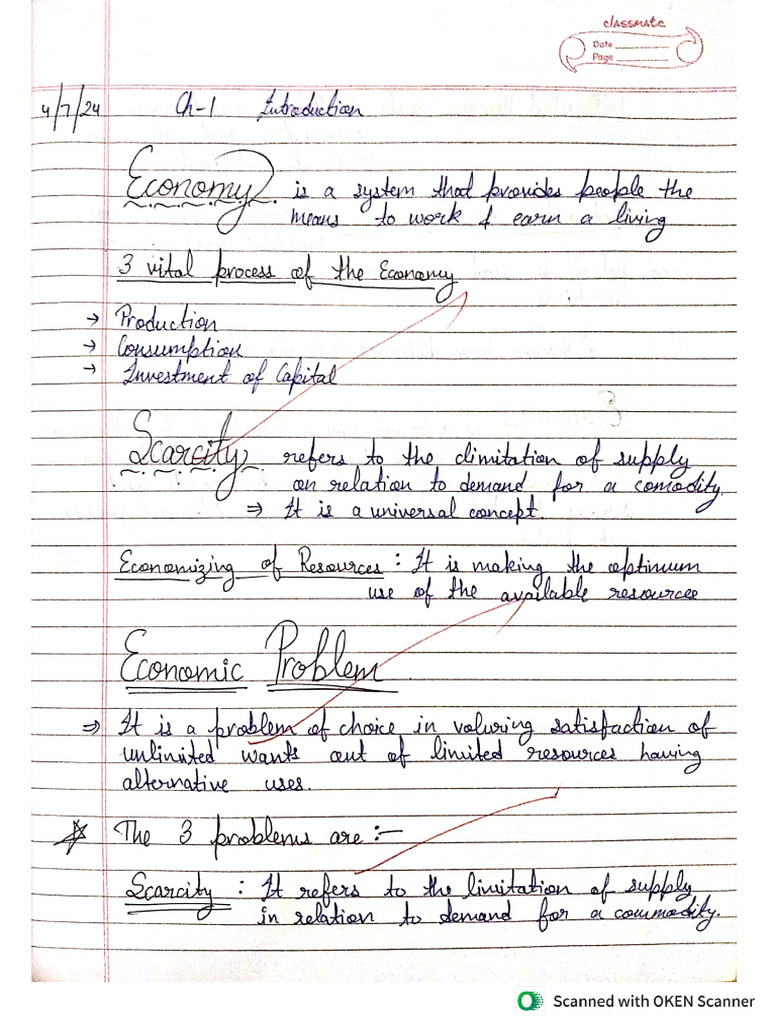 classmate
Date
Page
4/7/24 Ch-1 Introduction
Economy is a system that provides people the
means to work & earn a living
3 vital process of the Economy
→ Production
→ Consumption
→ Investment of Capital
Scarcity refers to the climitation of supply
on relation to demand for a comodity.
⇒ It is a universal concept.
Economizing of Resources : It is making the optimum
use of the available resources
Economic Problem
⇒ It is a problem of choice in voluring satisfaction of
unlimited wants out of limited resources having
alternative uses.
☆ The 3 problems are :-
Scarcity : It refers to the limitation of supply
in relation to demand for a commodity.
Scanned with OKEN Scanner